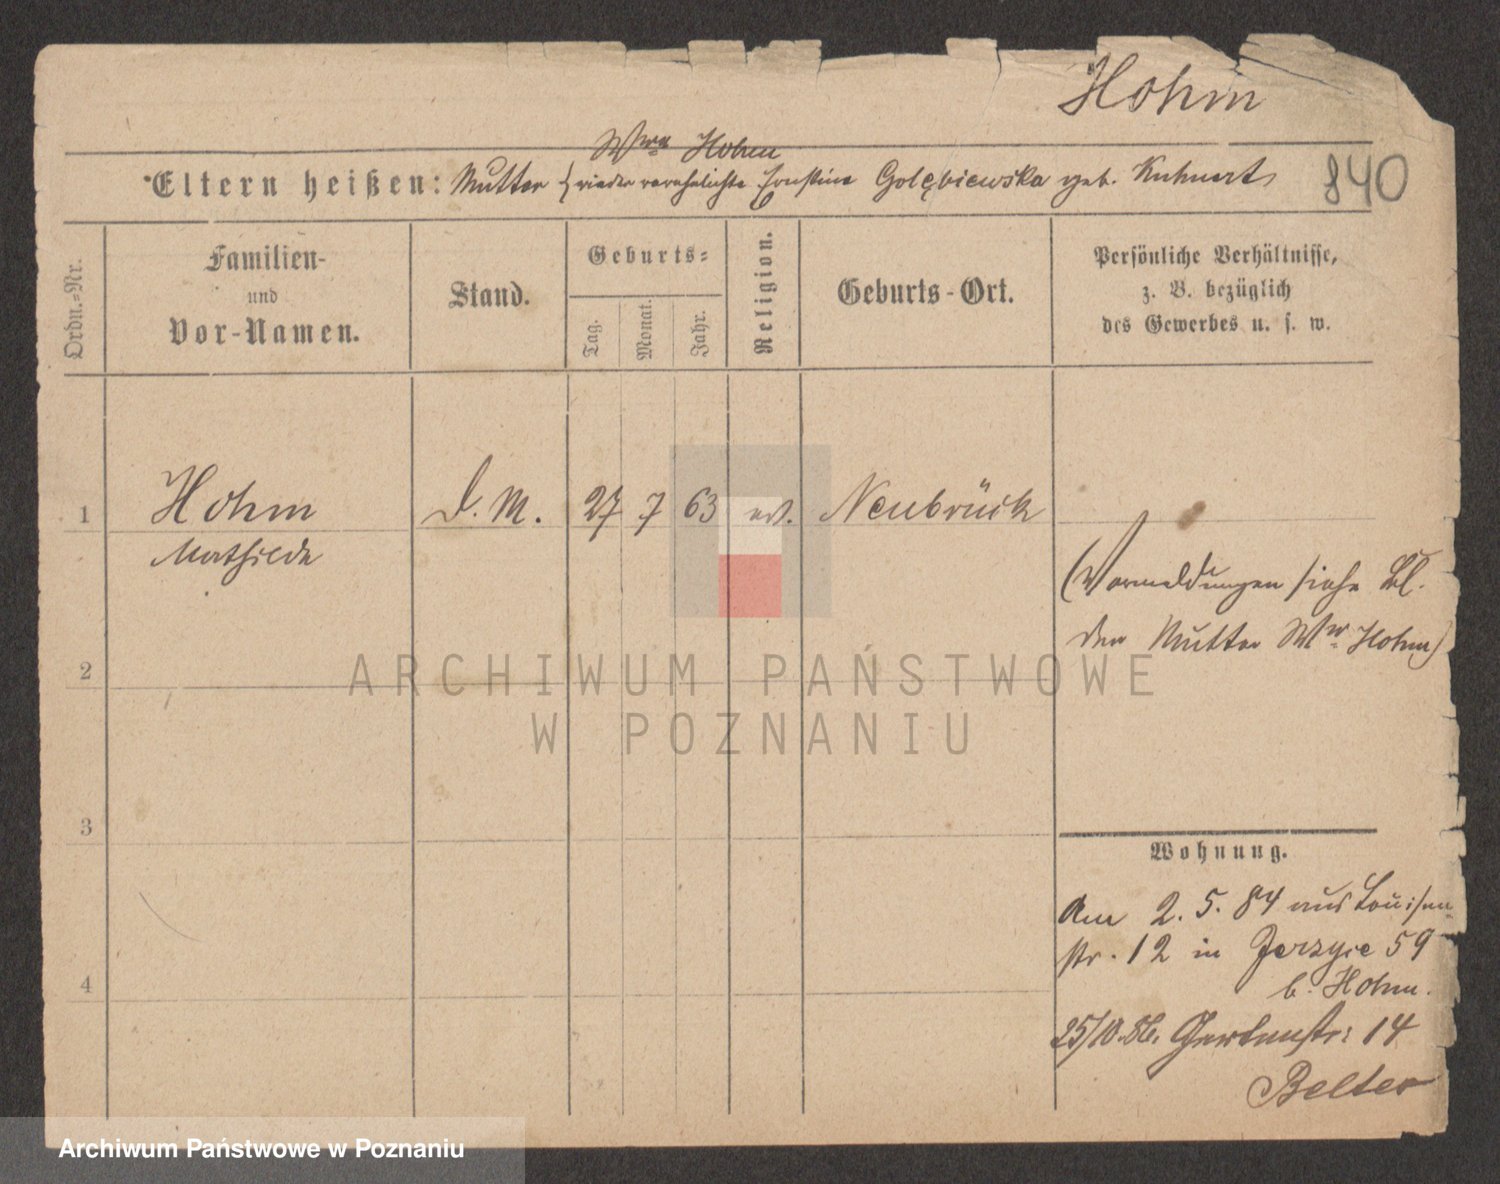 Hohm
Wwe Hohm
Eltern heißen: Mutter wieder verehelichte Ernstine Golębiewska geb. Kuhnert
840
Ordn.-Nr.
Familien-
und
Vor-Namen.
Stand.
Geburts-
Tag.
Monat.
Jahr.
Religion.
Geburts-Ort.
Persönliche Verhältnisse,
z. B. bezüglich
des Gewerbes u. s. w.
1 Hohm D. M. 27 7 63 ev. Neubrück
Mathilde
(Vormeldungen siehe Bl.
der Mutter Ww. Hohm)
2
3
4
Wohnung.
Am 2. 5. 84 aus Louisen-
str. 12 in Jerzyce 59
b. Hohm.
25/10.86. Gartenstr: 14
Belter
ARCHIWUM PAŃSTWOWE
W POZNANIU
Archiwum Państwowe w Poznaniu